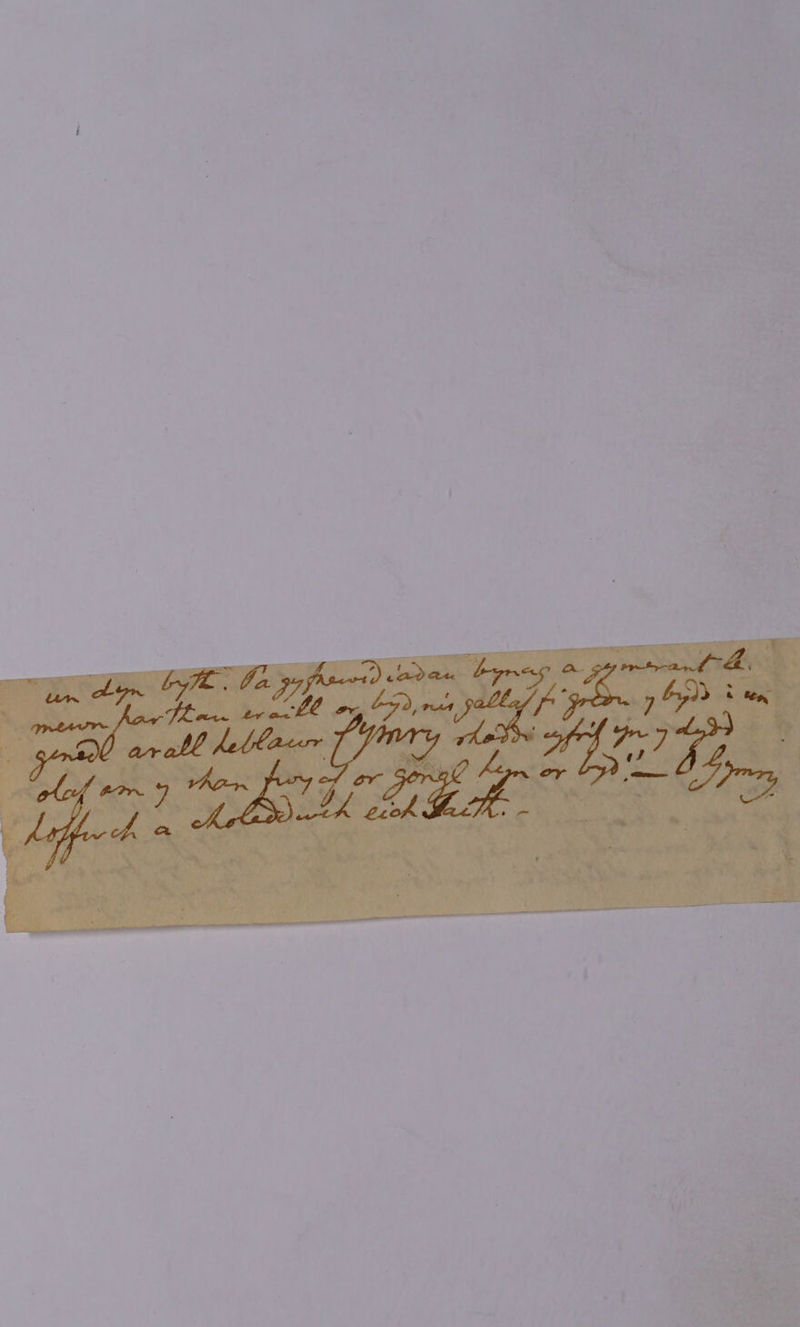 un dyn byth. Pa gyfnewidiadau bynag a gymerant le.
mewn parthau eraill or byd, nis gallaf fi gredu y bydd i un
genedl arall heblaw Cymry rhoddi cyfrif yn y dydd
olaf am y rhan hwy of or gongl hon or byd" — O Gymry
hoffwch a choleddwch eich Iaith. -